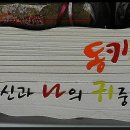 동키
신과 나의 귀중